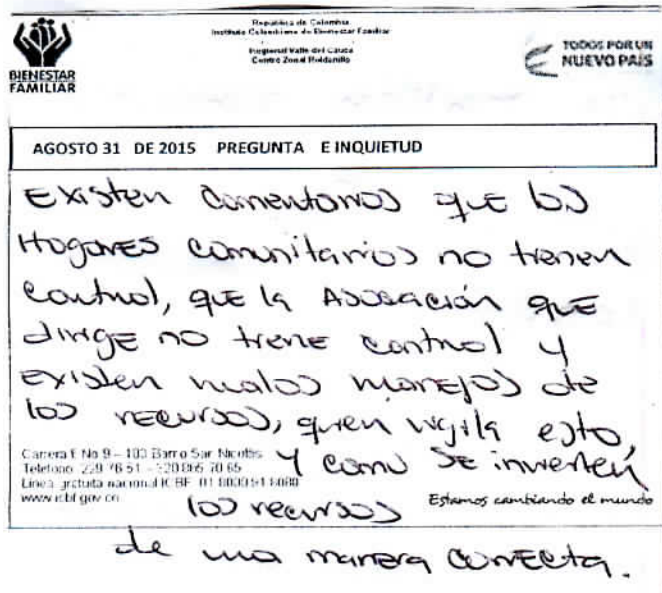 República de Colombia
Instituto Colombiano de Bienestar Familiar
Regional Valle del Cauca
Centro Zonal Roldanillo
BIENESTAR
FAMILIAR
TODOS POR UN
NUEVO PAÍS
AGOSTO 31 DE 2015 PREGUNTA E INQUIETUD
Existen comentarios que los
Hogares comunitarios no tienen
control, que la Asociación que
dirige no tiene control y
existen malos manejos de
los recursos, quien vigila esto,
y como se invierten
los recursos
de una manera correcta.
No 9 – 103 Barrio San Nicolás
Teléfono 229 76 51
Línea gratuita nacional ICBF 01 8000 91 8080
www.icbf.gov.co
Estamos cambiando el mundo